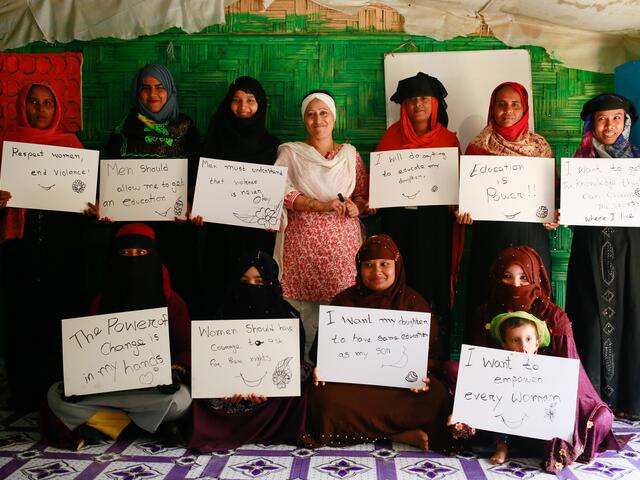 Respect women,
end violence!
Men should
allow me to get
an education
Men must understand
that violence
is never
okay
I will do anything
to educate my
daughters.
Education
is
Power!!
I want to get
the knowledge that
can
where I live
The Power of
Change is
in my hands
Women should have
courage to ask
for their rights
I want my daughter
to have same education
as my son
I want to
empower
every woman